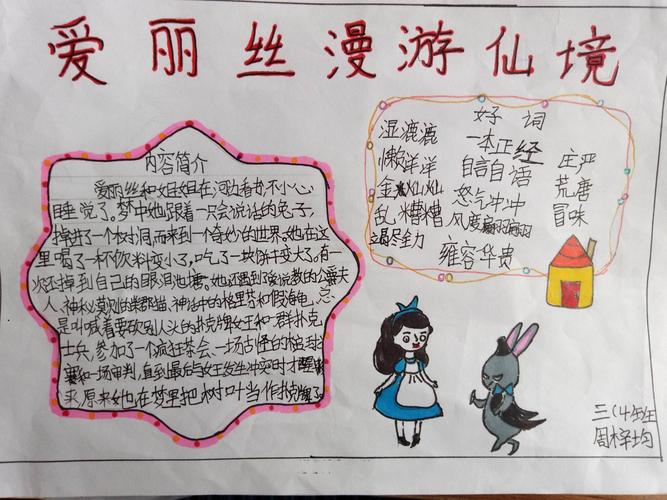 爱丽丝漫游仙境
内容简介
爱丽丝和姐姐在河边看书,不小心
睡觉了。梦中她跟着一只会说话的兔子,
掉进了一个树洞,而来到一个奇妙的世界。她在这
里喝了一杯饮料变小了,吃了一块饼干变大了。有
一次还掉到自己的眼泪池塘。她还遇到了爱说教的公爵夫
人、神秘莫测的柴郡猫、神话中的格里芬和假海龟,总
是叫喊着要砍别人头的扑克牌女王和一群扑克
士兵,参加了个疯狂茶会、一场古怪的槌球
和一场审判,直到最后与女王发生冲突时才醒
来原来她在梦里把树叶当作扑克牌了
好词
湿漉漉
一本正经
懒洋洋
自言自语
庄严
金灿灿
怒气冲冲
荒唐
乱糟糟
风度翩翩
冒昧
竭尽全力
雍容华贵
三(4)班
周梓均